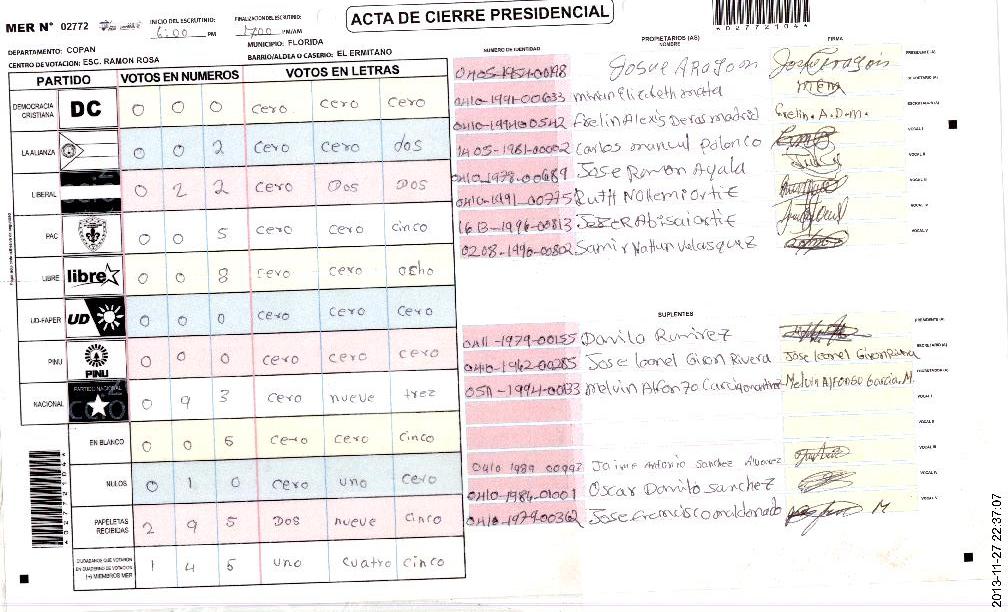 ACTA DE CIERRE PRESIDENCIAL
MER N° 02772
INICIO DEL ESCRUTINIO: 6:00 PM
FINALIZACION ESCRUTINIO: PM/AM
DEPARTAMENTO: COPAN
MUNICIPIO: FLORIDA
CENTRO DE VOTACION: ESC. RAMON ROSA
BARRIO/ALDEA O CASERIO: EL ERMITANO
PARTIDO VOTOS EN NUMEROS VOTOS EN LETRAS
DEMOCRACIA CRISTIANA DC 0 0 0 cero cero cero
LA ALIANZA 0 0 2 cero cero dos
LIBERAL 0 2 2 cero Dos Dos
PAC 0 0 5 cero cero cinco
LIBRE libre 0 0 8 cero cero ocho
UD-FAPER UD 0 0 0 cero cero cero
PINU PINU 0 0 0 cero cero cero
NACIONAL PARTIDO NACIONAL 0 9 3 cero nueve trez
EN BLANCO 0 0 5 cero cero cinco
NULOS 0 1 0 cero uno cero
PAPELETAS RECIBIDAS 2 9 5 Dos nueve cinco
CIUDADANOS QUE VOTARON EN CUADERNO DE VOTACION (+) MIEMBROS MER 1 4 5 uno cuatro cinco
NUMERO DE IDENTIDAD
PROPIETARIOS (AS)
NOMBRE
FIRMA
Josue ARAGON PRESIDENTE (A)
0410-1991-00633 SECRETARIO (A)
0410-1994-00542 Evelin Alexis Deras madrid Evelin. A.D.m. ESCRUTADOR (A)
1405-1981-00002 Carlos manuel Polanco VOCAL I
0410-1978-00689 Jose Ramon Ayala VOCAL II
0410-1991-00775 Ruth Nohemi ortiz VOCAL III
1613-1996-00813 VOCAL IV
0208-1990-00802 Samir Nathun velasquez VOCAL V
SUPLENTES
1979-00155 Danilo Ramirez PRESIDENTE (A)
0410-1962-00285 Jose leonel Giron Rivera Jose leonel Giron Rivera SECRETARIO (A)
Melvin Alfonso Garcia. M. ESCRUTADOR (A)
VOCAL I
VOCAL II
0410 1989 00992 Jaime Antonio Sanchez Alvarez VOCAL III
0410-1984-01001 Oscar Danilo Sanchez VOCAL IV
0410-1979-00362 Jose francisco maldonado M VOCAL V
2013-11-27 22:37:07